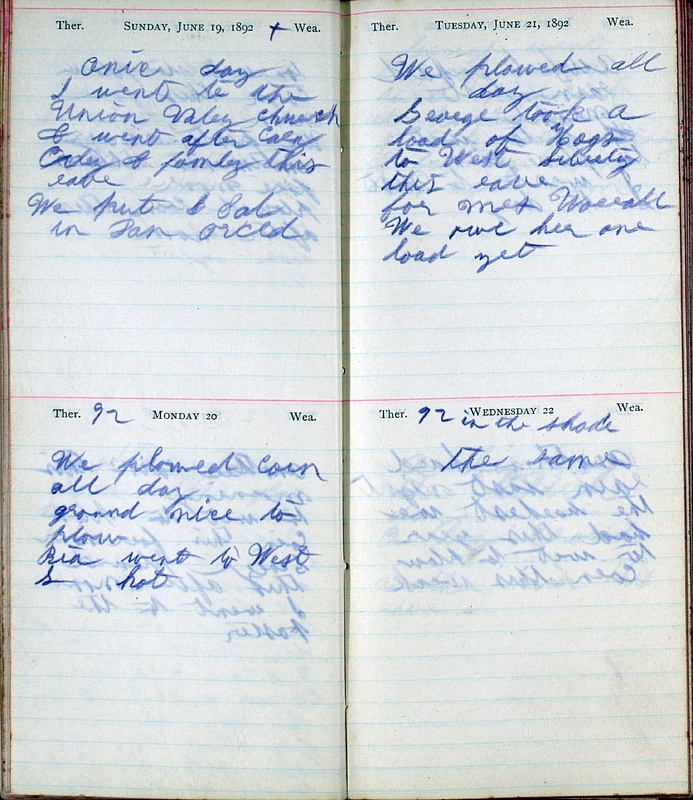 Ther. SUNDAY, JUNE 19, 1892 + Wea.
Onie day
I went to the
Union Valey chuech
I went after Caey
Caley & famley this
eave
We put & Sal
in orced
Ther. 92 MONDAY 20 Wea.
We plowed Coen
all day
ground nice to
plow
Bia went to West
L hot
Ther. TUESDAY, JUNE 21, 1892 Wea.
We plowed all
day
George took a
load of Hogs
to West Liberty
this eave
for mes
We owe her one
load yet
Ther. 92 WEDNESDAY 22 Wea.
in the shade
the same